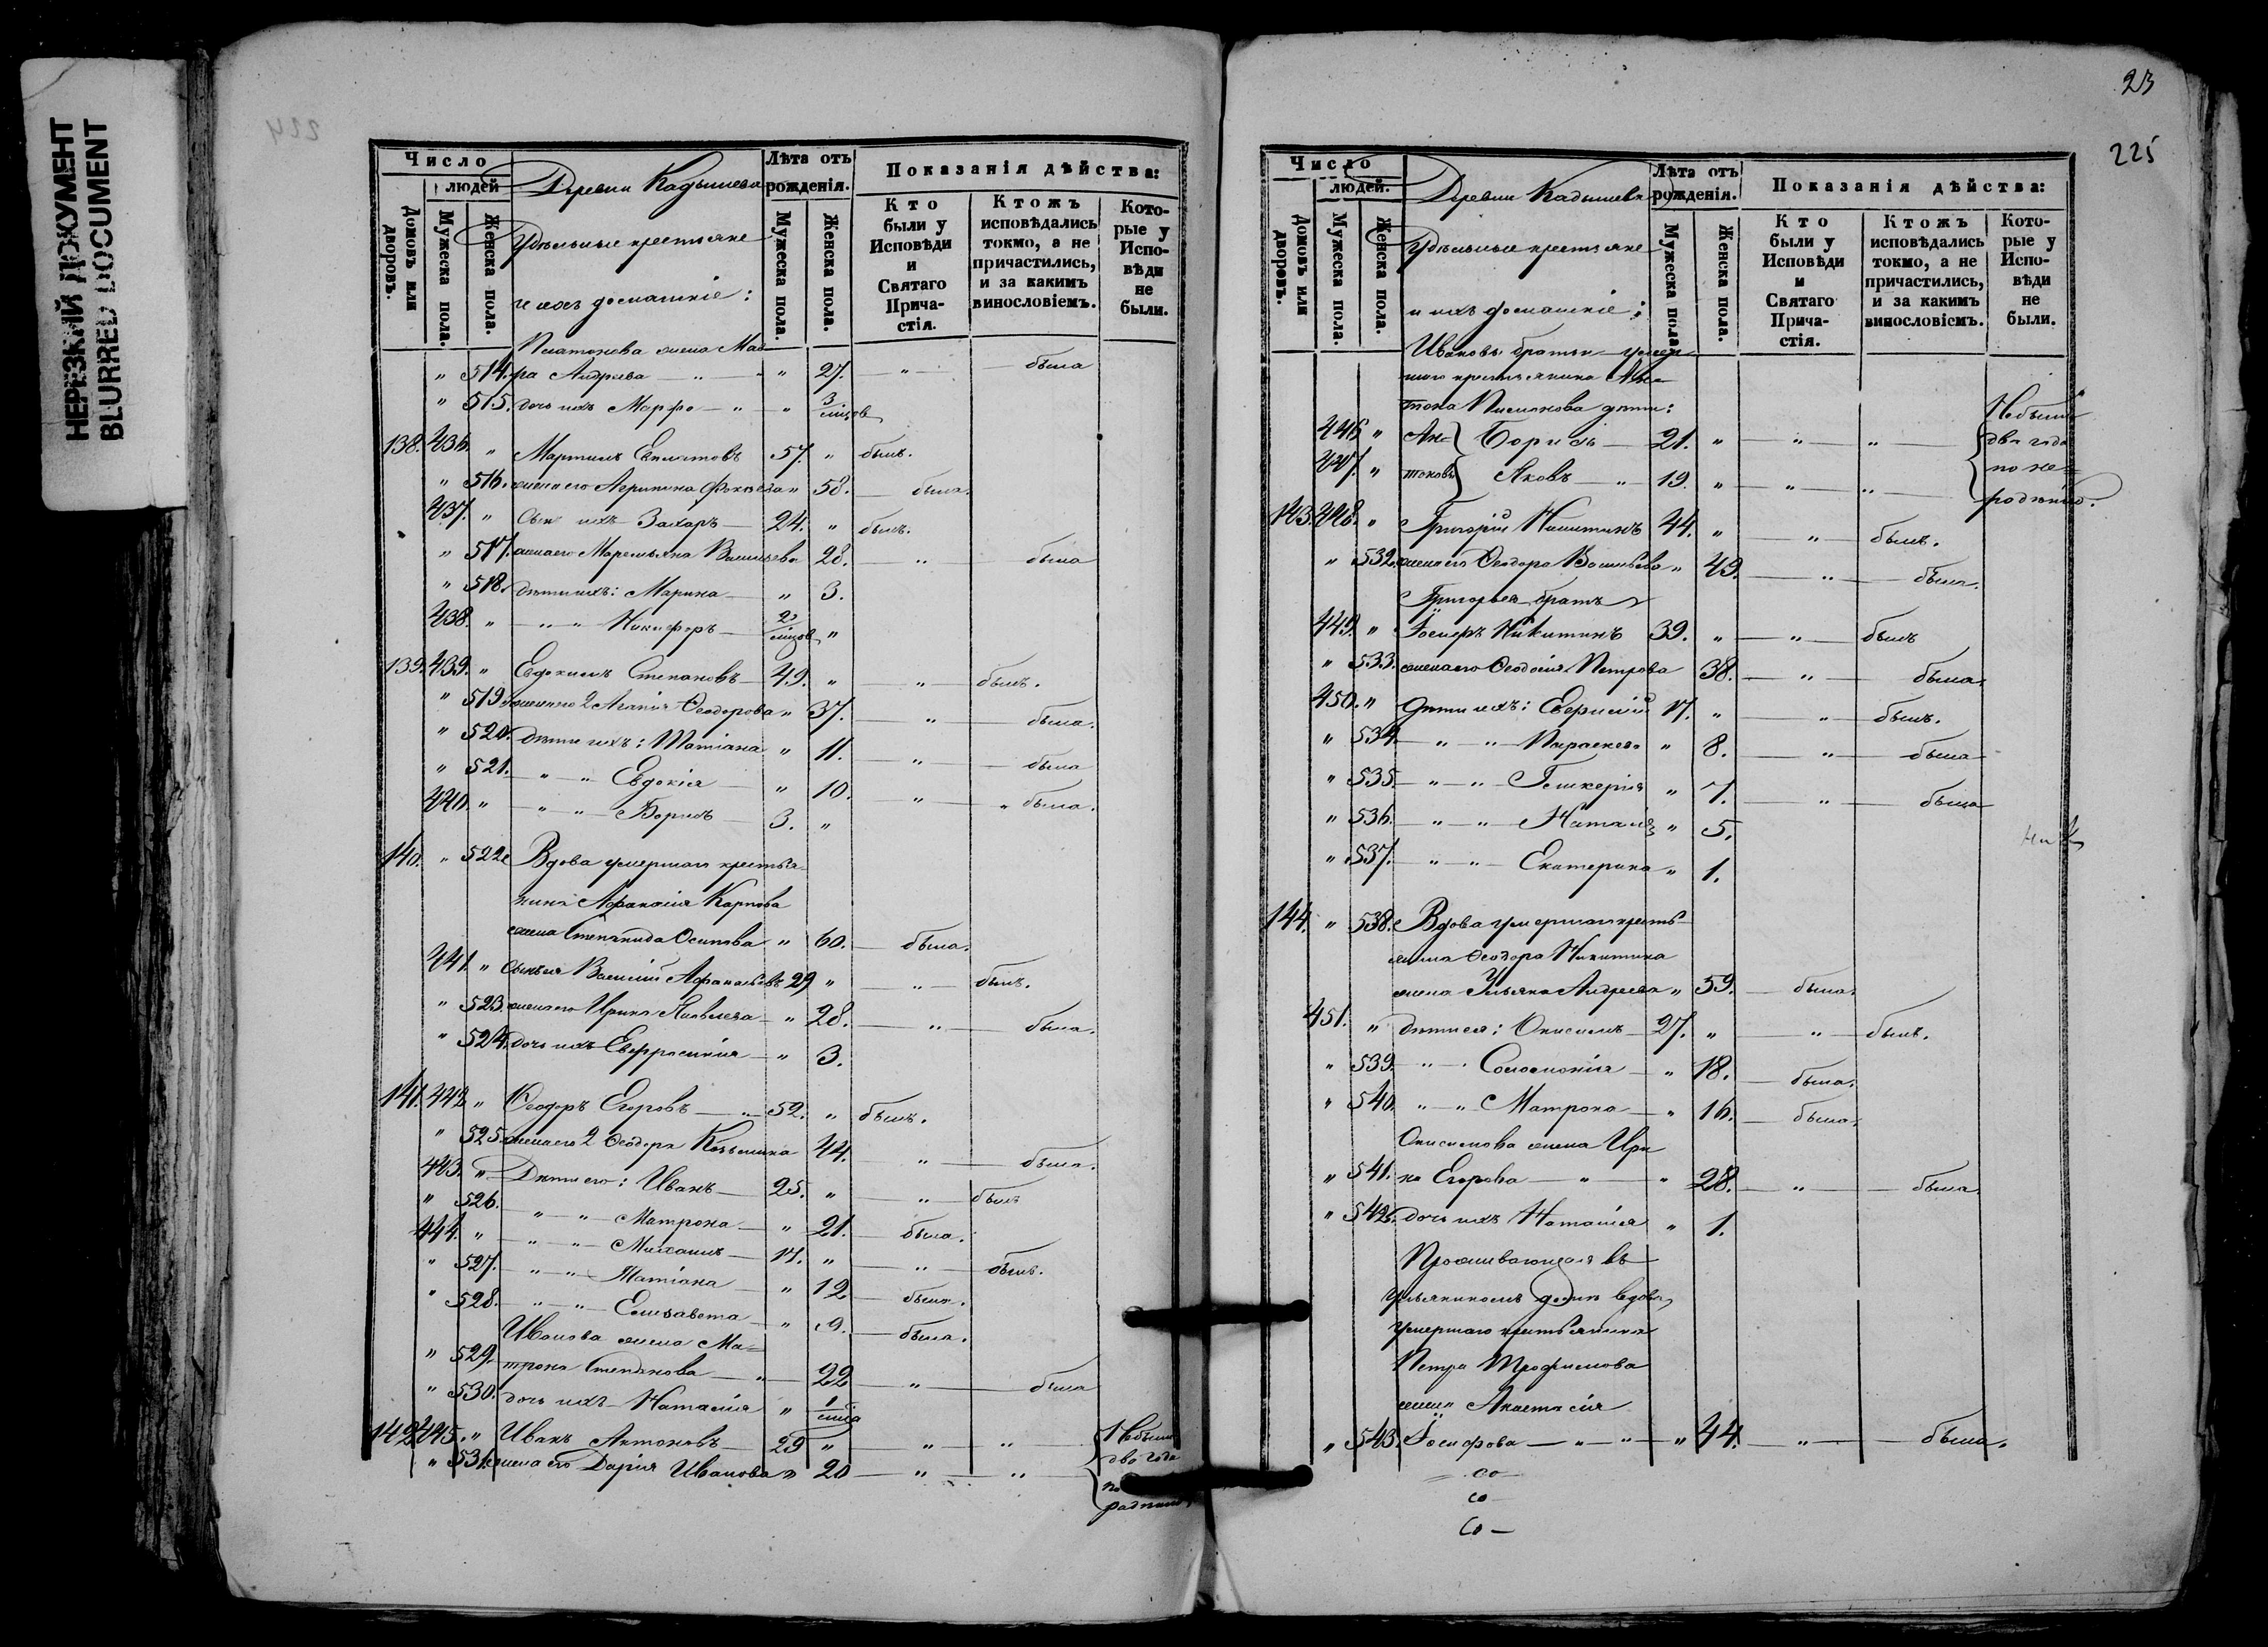 НЕРЕЗКИЙ ДОКУМЕНТ
BLURRED DOCUMENT
224
Число
людей
Домовъ или дворовъ.
Мужеска пола.
Женска пола.
Деревни Кадышева
Удѣльные крестьяне
и ихъ домашніе:
Лѣта отъ рожденія.
Мужеска пола.
Женска пола.
Показанія дѣйства:
Кто были у Исповѣди и Святаго Причастія.
Ктожъ исповѣдались токмо, а не причастились, и за какимъ винословіемъ.
Которые у Исповѣди не были.
Платонова жена Мав-
" 514. ра Андреева — " — " 27. — " — была
" 515. дочь ихъ Марфа — " — " 3/мѣсяцов
138. 436. " Мартинъ 57. " былъ.
" 516. жена его Агрипина " 58. — была.
437. " Сын ихъ Захаръ — 24. " былъ.
" 517. жена его Маремьяна Васильева 28. " — была
" 518. дѣти ихъ: Марина — " 3.
438. " — " " Никифоръ — 2/мѣсяцов "
139. 439. " Евдокимъ Степановъ — 49. " — " — былъ.
" 519. жена его 2 Агапія Ѳеодорова " 37. " — была.
" 520. Дѣти ихъ: Татіана " 11. — " — была
" 521. — " " Евдокія — " 10. " — " была.
440. " — " " — Борисъ — 3. "
140. " 522. Вдова умершаго крестья-
нина Аѳанасія Карпова
жена Степанида Осипова " 60. — была.
441. " Сынъ ея Василій Аѳанасьевъ 29 " — " — былъ.
" 523. жена его Ирина Яковлева — " 28. — " — была.
" 524. дочь ихъ Евфросинія — " 3.
141. 442. " Ѳеодоръ Егоровъ — " 52. " былъ.
" 525. жена его 2 Ѳеодора Козьмина 44. — " — была.
443. " Дѣти его: Иванъ — 25. " — " — былъ
" 526. " — " — Матрона — " 21. — была.
444. " — " " — Михаилъ — 17. " — " — былъ.
" 527. — " " — Татіана — " 12 — была.
" 528. — " " — Елизавета — " 9. — была.
Иванова жена Ма-
" 529. трона Степанова — " — 22 — " — была
" 530. дочь ихъ — Наталія " 1/мѣсяца
142. 445. " Иванъ Антоновъ — 29 " " "
" 531. жена его Дарія Иванова " 20 — " — "
Небыли
два года
по
радѣнію
23
225
Число
людей.
Домовъ или дворовъ.
Мужеска пола.
Женска пола.
Деревни Кадышева
Удѣльные крестьяне
и ихъ домашніе:
Лѣта отъ рожденія.
Мужеска пола.
Женска пола.
Показанія дѣйства:
Кто были у Исповѣди и Святаго Причастія.
Ктожъ исповѣдались токмо, а не причастились, и за какимъ винословіемъ.
Которые у Исповѣди не были.
Ивановы братья — умер-
шаго крестьянина Ан-
тона дѣти:
446 " Ан- } Борисъ — 21. " — " — "
447. " тоновы } Яковъ — " 19. " — " — "
Небыли
два года
по не=
радѣнію.
143. 448. " Григорій Никитинъ 44. " — " — былъ.
" 532. жена его Ѳеодора Васильева " 49. — " — была.
Григорья братъ
449. " Іосифъ Никитинъ 39. " — " — былъ
" 533. жена его Ѳеодосія Петрова 38. — " — была.
450. " Дѣти ихъ: 17. " — " — былъ.
" 534. — " — " — Параскева " 8. — " — была
" 535. — " — " — Гликерія " 7. — " — была
" 536. — " — " — Наталія " 5.
" 537. — " — " — Екатерина " 1.
144. " 538. Вдова умершаго кресть-
янина Ѳеодора Никитина
жена Ульяна Андреева " 59. — была.
451. " дѣти ея: Онисимъ — 27. " — " — былъ.
" 539. — " — " Соломонія — " 18. — была.
" 540. " — " — Матрона — " 16. — была.
Онисимова жена Ири
" 541. на Егорова — " — " 28. — " — была.
" 542. дочь ихъ Наталія " 1.
Проживающая въ
Ульяниномъ домѣ вдова
умершаго крестьянина
Петра Трофимова
жена Анастасія
" 543. Іосифова — " — " — " 44. — " — была.